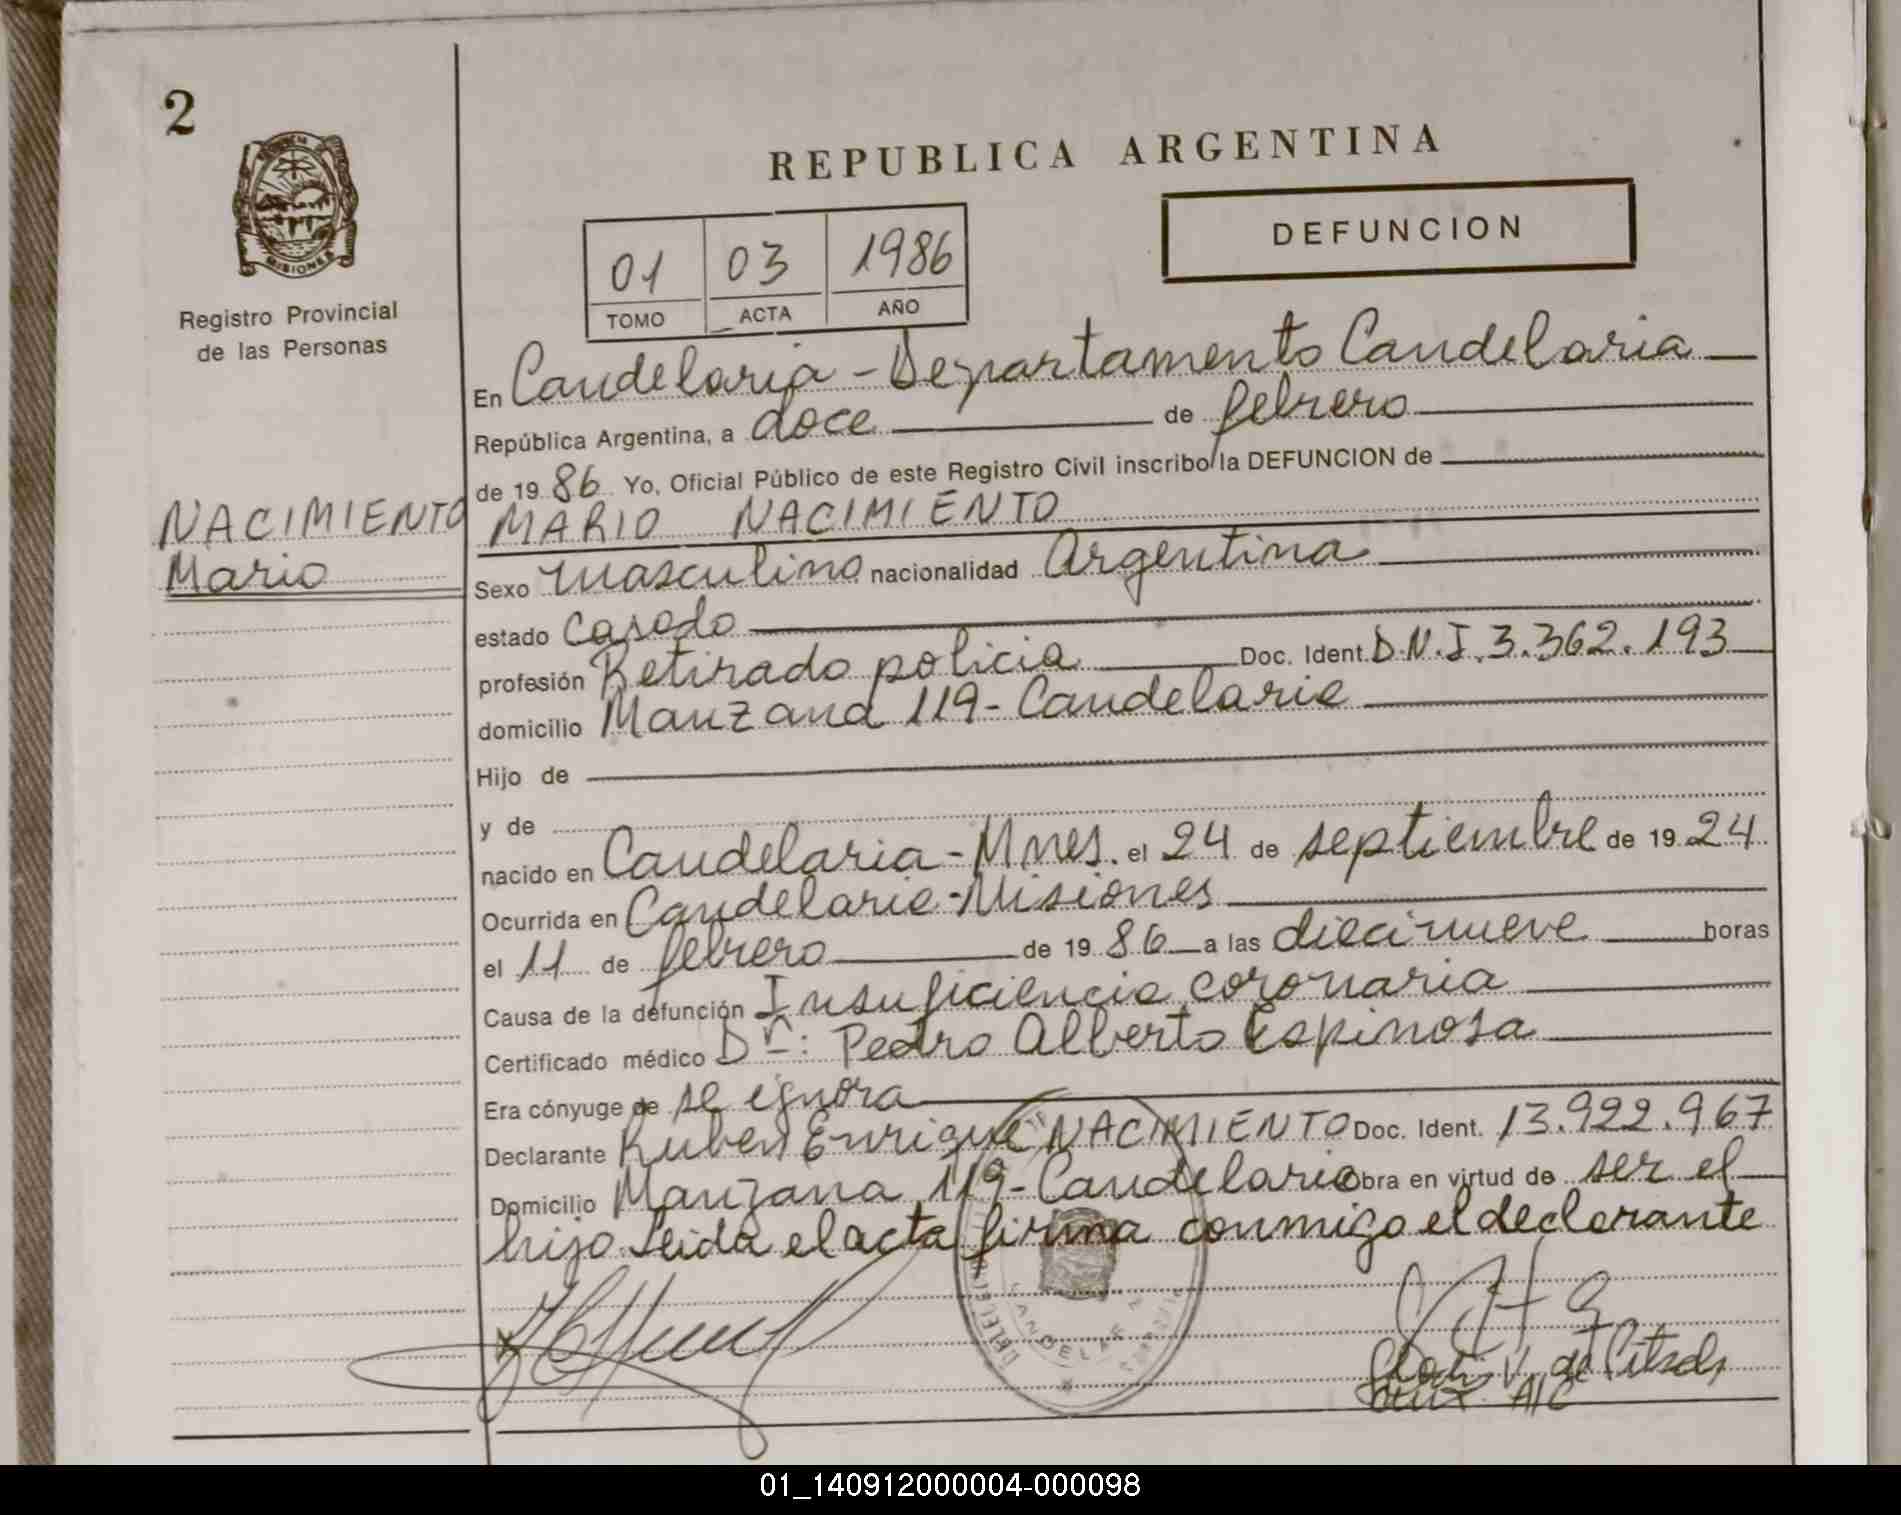 2
MISIONES
Registro Provincial
de las Personas
NACIMIENTO
Mario
REPUBLICA ARGENTINA
01 03 1986
TOMO ACTA AÑO
DEFUNCION
En Candelaria - Departamento Candelaria
República Argentina, a doce de febrero
de 19 86 Yo, Oficial Público de este Registro Civil inscribo la DEFUNCION de
MARIO NACIMIENTO
Sexo masculino nacionalidad Argentina
estado Casado
profesión Retirado policia Doc. Ident. D.N.I. 3.362.193
domicilio Manzana 119 - Candelaria
Hijo de
y de
nacido en Candelaria - Mnes. el 24 de septiembre de 19 24
Ocurrida en Candelaria - Misiones
el 11 de febrero de 19 86 a las diecinueve horas
Causa de la defunción Insuficiencia coronaria
Certificado médico Dr.: Pedro Alberto Espinosa
Era cónyuge de se ignora
Declarante Ruben Enrique NACIMIENTO Doc. Ident. 13.922.967
Domicilio Manzana 119 - Candelaria obra en virtud de ser el
hijo Leida el acta firma conmigo el declarante
01_140912000004-000098